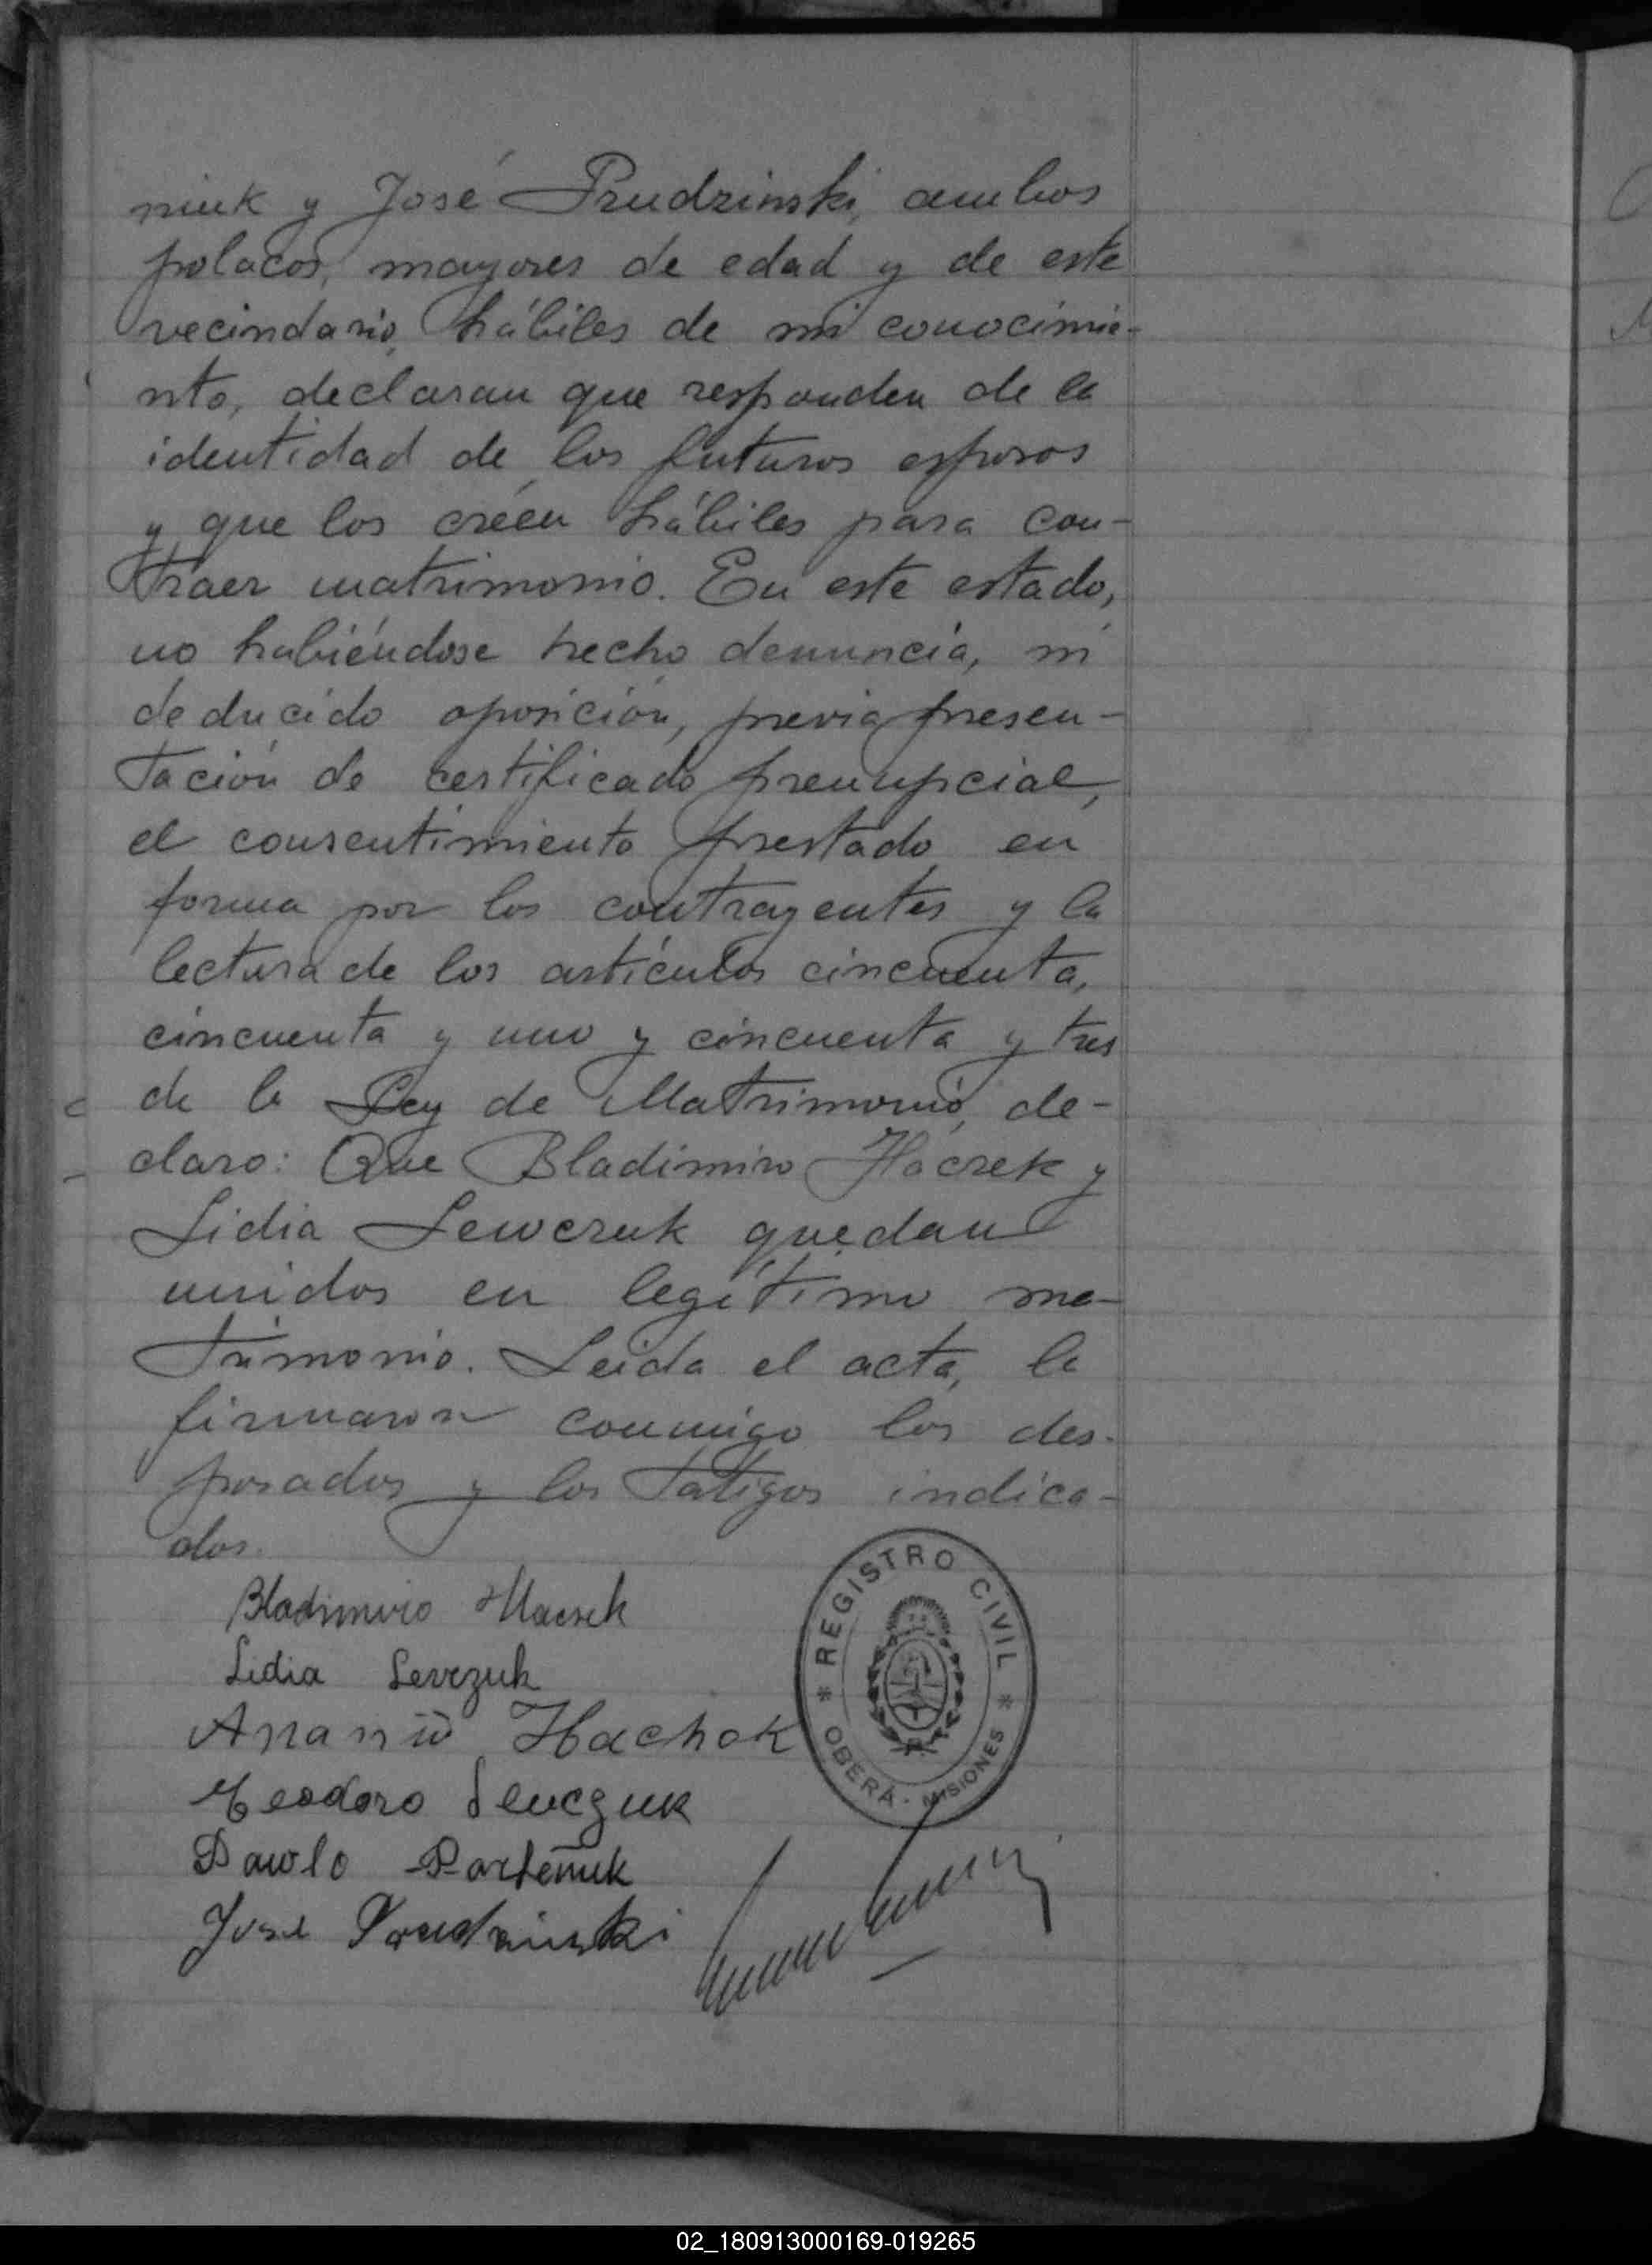 niuk y José Prudzinski, ambos
polacos, mayores de edad y de este
vecindario, hábiles de mi conocimie-
nto, declaran que responden de la
identidad de los futuros esposos
y que los créen hábiles para con-
traer matrimonio. En este estado,
no habiéndose hecho denuncia, ni
deducido oposición, previa presen-
tación de certificado prenupcial,
el consentimiento prestado en
forma por los contrayentes y la
lectura de los artículos cincuenta,
cincuenta y uno y cincuenta y tres
de la Ley de Matrimonio, de-
claro: Que Bladimiro Haczek y
Lidia Lewczuk quedan
unidos en legítimo ma-
trimonio. Leida el acta, la
firmaron conmigo los des-
posados y los testigos indica-
dos.
Bladimiro
Lidia Levczuk
Anani Hachek
Teodoro Levczuk
Pawlo Parteniuk
José Prudzinski
REGISTRO CIVIL
OBERÁ - MISIONES
02_180913000169-019265